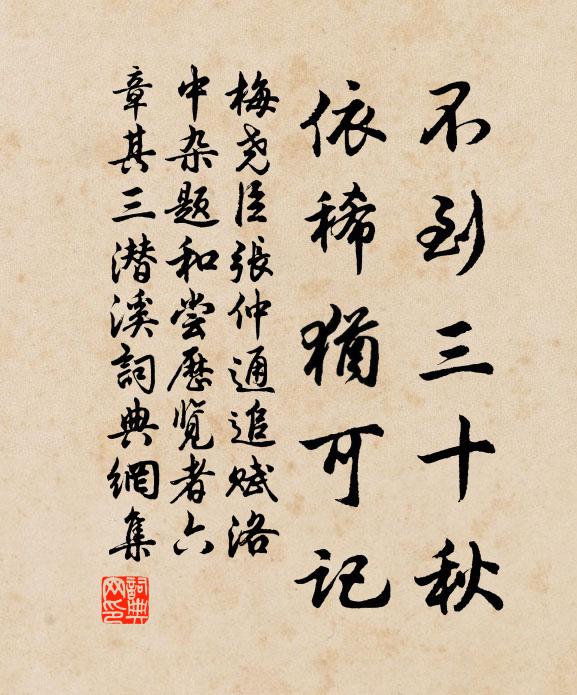 不到三十秋
依稀猶可記
梅尧臣張仲通追赋洛
中杂题和尝歷览者六
章其三潜溪詞典網集
詞典網印